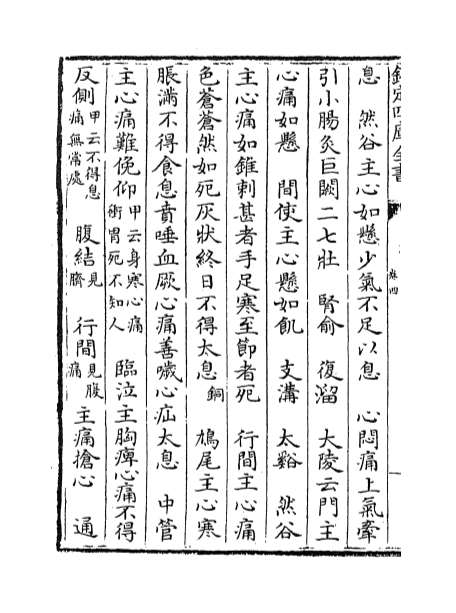 欽定四庫全書
卷四
息　然谷主心如懸少氣不足以息　心悶痛上氣牽
引小腸灸巨闕二七壯　腎俞　復溜　大陵云門主
心痛如懸　間使主心懸如飢　支溝　太谿　然谷
主心痛如錐刺甚者手足寒至節者死　行間主心痛
色蒼蒼然如死灰狀終日不得太息銅　鳩尾主心寒
脹滿不得食息賁唾血厥心痛善噦心疝太息　中管
主心痛難俛仰甲云身寒心痛衝冒死不知人　臨泣主胸痺心痛不得
反側甲云不得息痛無常處　腹結見臍　行間見腹痛　主痛搶心　通